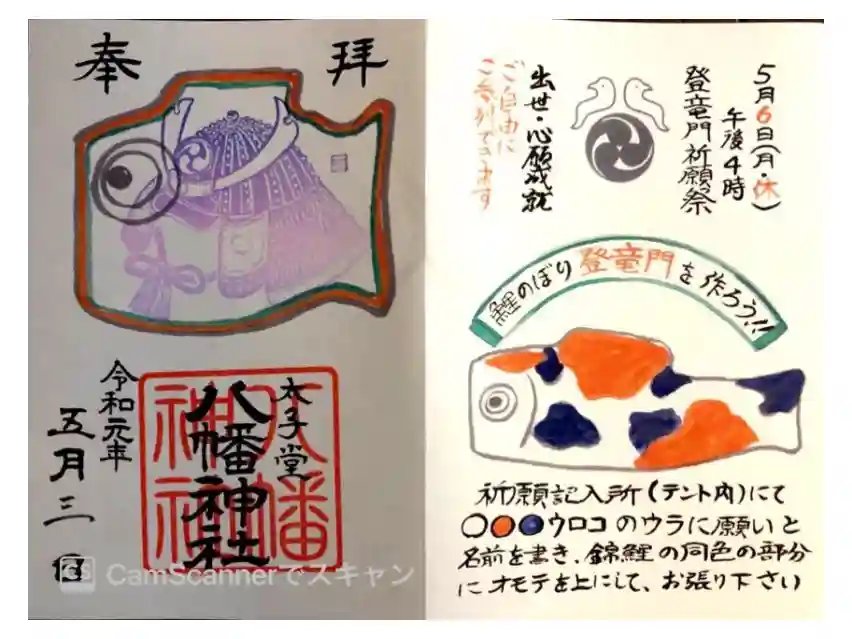 奉
拝
太子堂
八幡神社
八幡
神社
令和元年
五月三日
CS CamScannerでスキャン
5月6日(月・休)
午後4時
登竜門祈願祭
出世・心願成就
ご自由に
ご参列できます
鯉のぼり登竜門を作ろう!!
祈願記入所(テント内)にて
○●●ウロコのウラに願いと
名前を書き、錦鯉の同色の部分
にオモテを上にして、お張り下さい